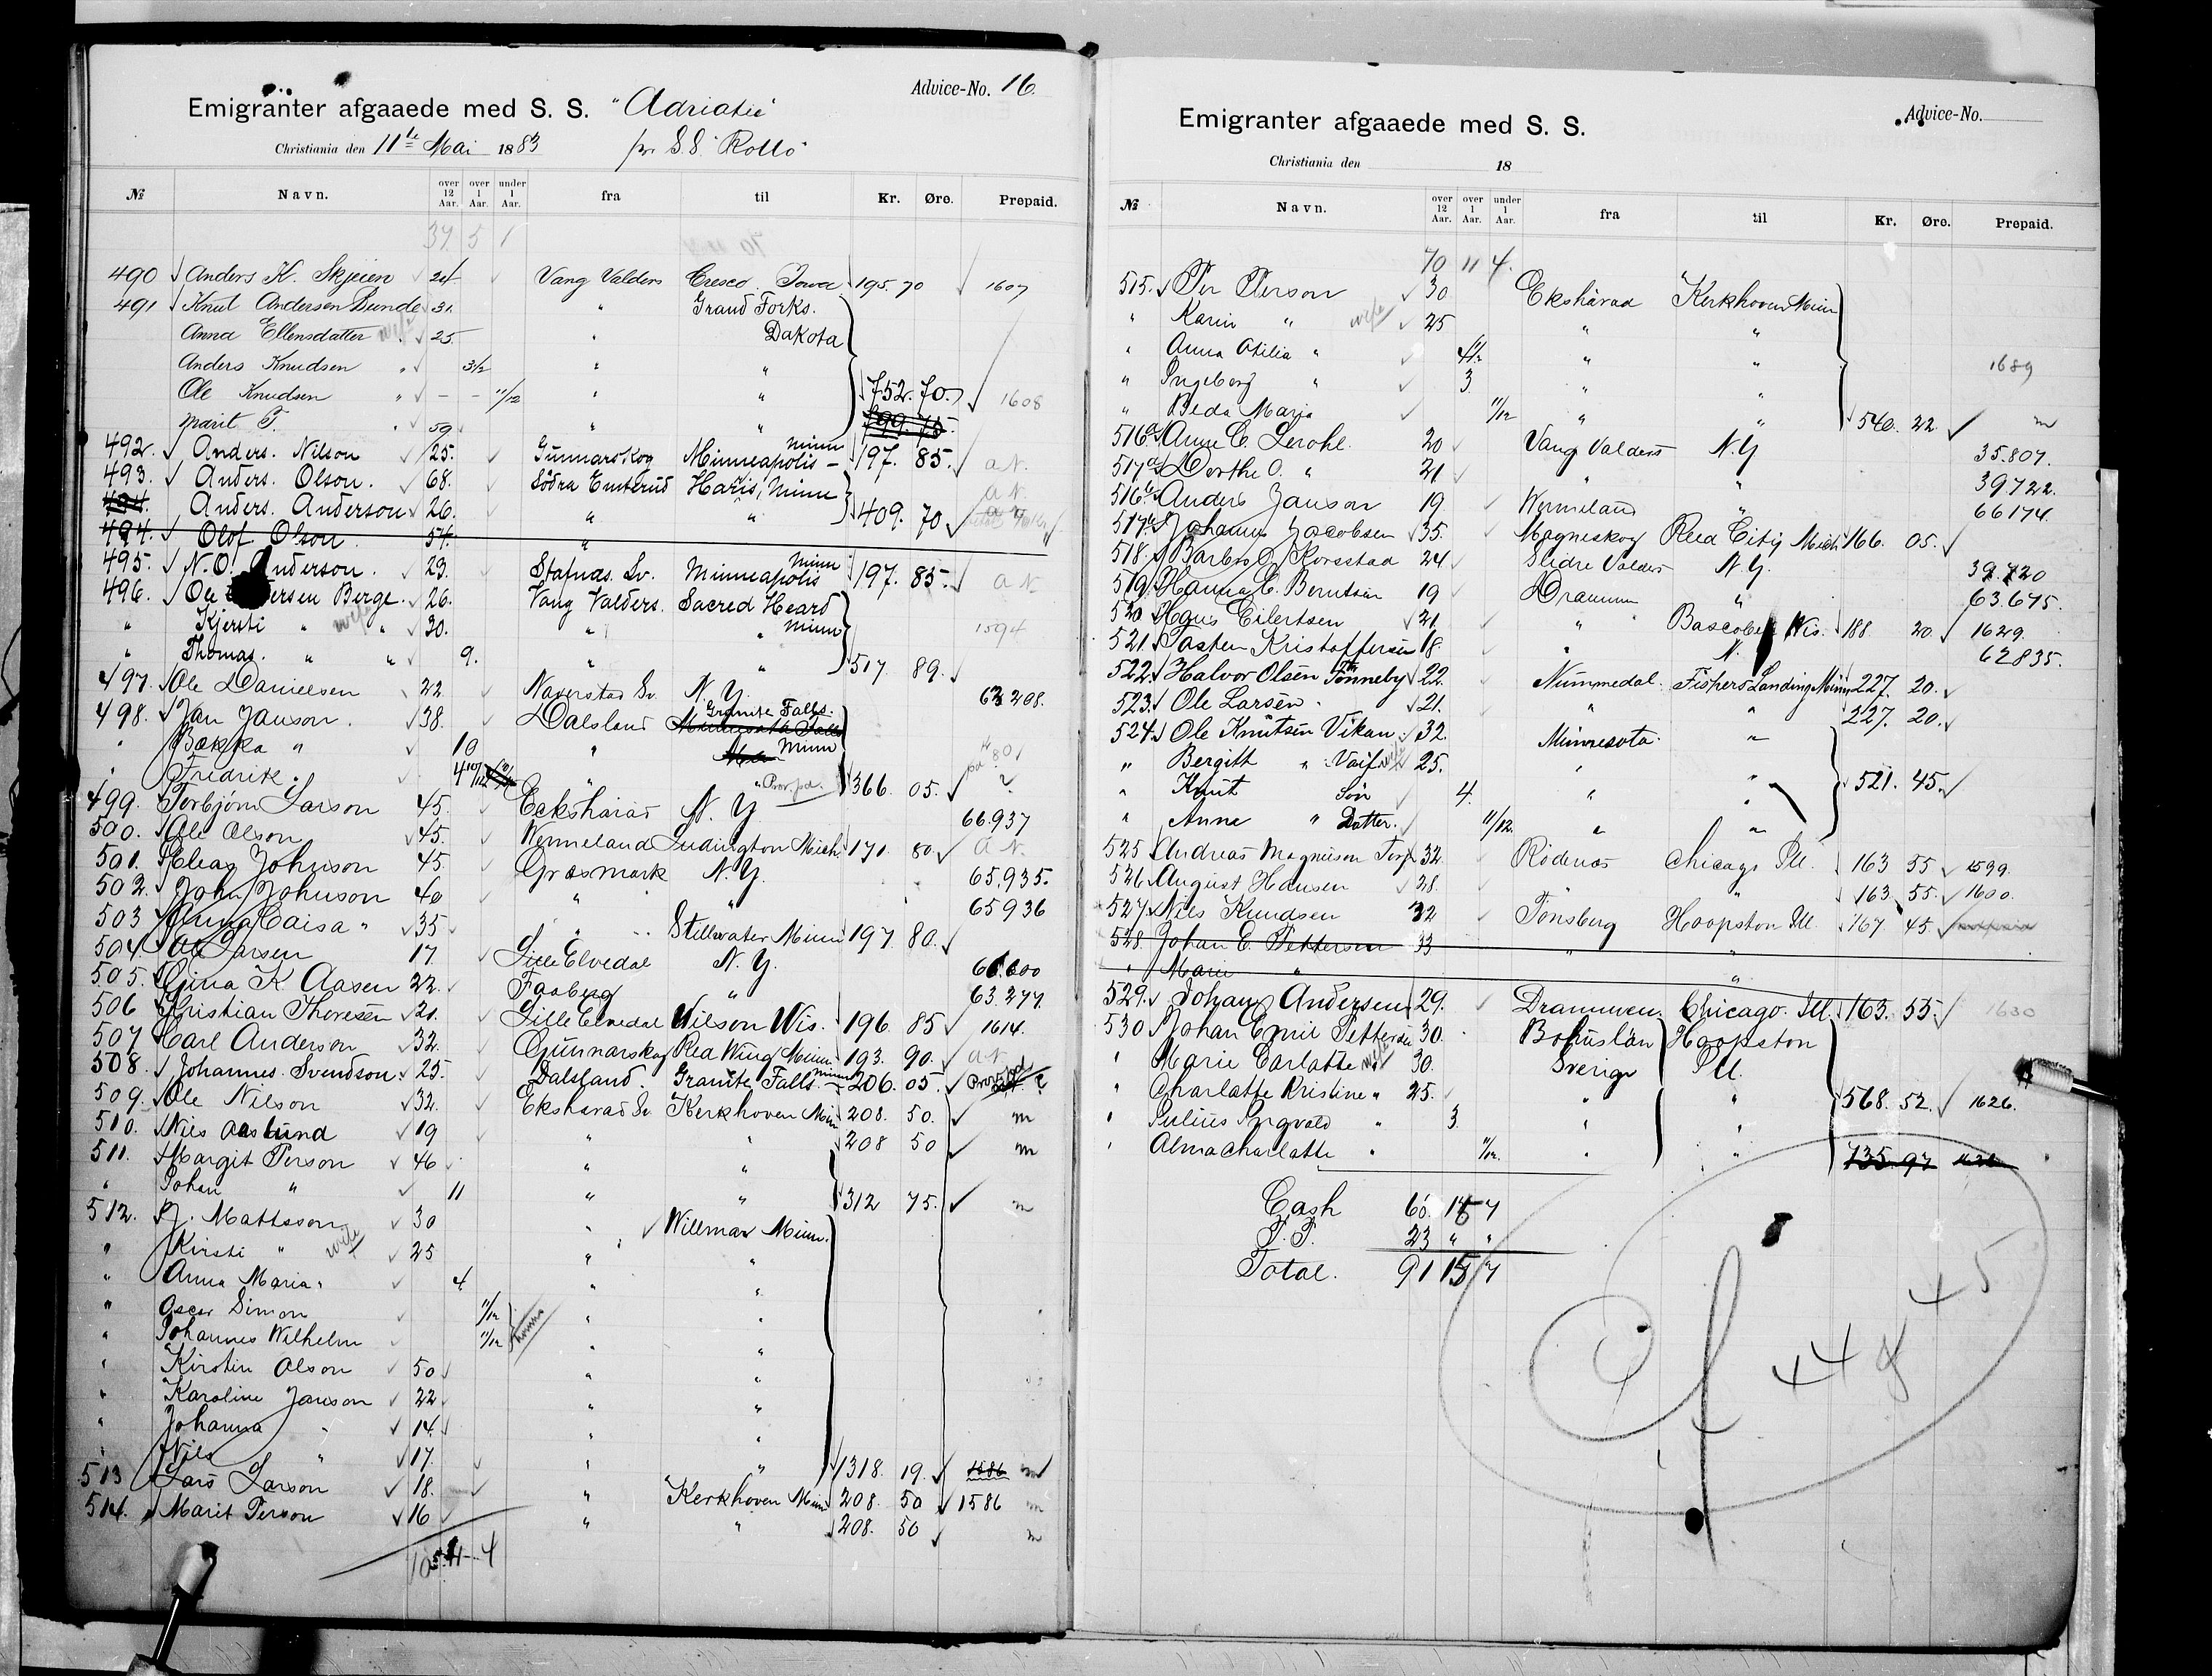 Advice-No. 16.
Emigranter afgaaede med S. S. "Adriatic"
Christiania den 11te Mai 1883 pr S.S. "Rollo"
№ Navn. over 12 Aar. over 1 Aar. under 1 Aar. fra til Kr. Øre. Prepaid.
37 5 1
490 Anders K. Skjeien 24 Vang Valders Cresco Iowa 195. 70 1607
491 Knut Andersen Sunde 31. " Grand Forks.
Anna Ellensdatter wife 25 " Dakota
Anders Knudsen " 3/2 " "
Ole Knudsen " – – 11/12 " " 752. 70. 1608
Marit T. " 59 " " 799. 75.
492. Anders. Nilson 25. Gunnarskog Minneapolis – Minn 197. 85. a N.
493. Anders. Olson. 68. Södra Emterud Haris, Minn a N.
494. Anders. Anderson 26. " " 409. 70
494. Olof Olson 54. "
495. N. O. Anderson. 23. Stafnäs. Sv. Minneapolis Minn 197. 85. a N.
496. Ole ersen Berge. 26. Vang Valders. Sacred Heard
" Kjersti " wife " 30. " " Minn 1594
" Thomas. " " 9. " " 517 89.
497. Ole Danielsen 22 Naverstad Sv. N. Y. 63 208.
498. Jan Janson. 38. Dalsland Granite Falls. Minnesota Falls
" Bækka " 10 " Minn
" Fredrik. 4 10/12 " " Prov. pd. 366. 05. ?
499. Torbjörn Larson 45. Eckshärad N. Y. 66.937
500. Ole Olson 45. Wermeland Ludington Mich. 171. 80. a N.
501. Eleas Johnson 45. Græsmark N. Y. 65.935.
502. John Johnson 40 " " 65936
503 Anna Caisa " 35 " " Stillwater Minn 197 80.
504. Ole Larsen 17. Lille Elvedal N. Y.
505. Gina K. Aasen 22. Faaberg " 63.277
506 Kristian Thoresen 21. Lille Elvedal Wilson Wis. 196. 85 1614.
507 Carl Anderson 32. Gunnarskog Red Wing Minn 193. 90. a N.
508. Johannes. Svendson 25. Dalsland. Granite Falls. Minn 206. 05. ?
509. Ole Nilson 32. Ekshärad Sv Kerkhoven Min 208. 50. m
510. Nils Aaslund 19 " " 208 50 m
511. Margit Person 46 " "
" Johan " 11 " " 312 75. m
512. J. Mattsson 30 " Willmar Minn.
" Kirsti " wife 25 " "
" Anna Maria " 4 " "
" Oscar Simon 11/12 " "
" Johannes Wilhelm 11/12 " "
" Kirstin Olson 50 " "
" Karoline Janson 22 " "
" Johanna " 14. " "
" Nils " 17. " " 1318. 19. 1586 m
513 Lars Larson 18. " Kerkhoven Minn 208. 50 1586 m
514. Marit Person 16 " " 208. 50 m
Advice-No.
Emigranter afgaaede med S. S.
Christiania den 18
№ Navn. over 12 Aar. over 1 Aar. under 1 Aar. fra til Kr. Øre. Prepaid.
70 11 4.
515. Per Person 30 Ekshärad Kerkhoven Minn
" Karin " wife 25 " "
" Anna Otilia " " " 1689
" Ingeborg " 3 " "
" Beda Maria 11/12 " " 540. 22 m
516a Anne C. Lerohl. 20 Vang Valders N. Y. 35.807.
517a Dorthe O. " 21 " " 39722.
516b Anders Janson 19 Wermeland " 66174.
517b Johannes Jacobsen 35. Magneskog Reed City Mich 166. 05.
518. Barbro O. Korsstad 24 Slidre Valders N. Y. 39.720
519. Hanna C. Berntsen 19 Drammen " 63.675.
520 Hans Eilertsen 21. " " Bascobel Wis. 188. 20. 1629.
521. Torsten Kristoffersen 18. " N. 62835.
522. Halvor Olsen Tönneby 22. Nummedal. Fishers Landing Minn 227. 20.
523. Ole Larsen. 21. " " 227. 20.
524. Ole Knutsen Vikan 32. Minnesota. "
" Bergith " Vaif wife 25. " "
" Knut Sön 4. " " 521. 45.
" Anne " Datter. 11/12. " "
525 Andreas Magnuson 32. Rödenæs Chicago Ill. 163 55 1599.
526 August Hansen 28. " " 163. 55. 1600.
527. Nils Knudsen 32 Tönsberg Hoopston Ill. 167. 45
528. Johan E. Pettersen 33 " "
" Marie " "
529. Johan Andersen 29. Drammen. Chicago. Ill. 163. 55. 1630
530 Johan Emil Pettersen 30. Bohuslän Hoopston
" Marie Carlotte wife 30. Sverige Ill.
" Charlatte Kristine " 25. " " 568. 52. 1626.
" Julius Ingvald " 3. " "
" Alma Charlatte " 11/12. " " 735.97
Cash 60. 15 7
P. P. 23 " "
Total. 91 15 7
448 45